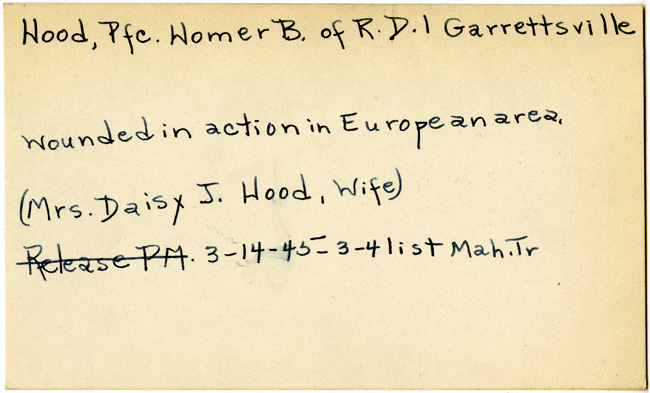 Hood, Pfc. Homer B. of R.D.1 Garrettsville
wounded in action in European area.
(Mrs. Daisy J. Hood, Wife)
Release P.M. 3-14-45 - 3-4 list Mah.Tr